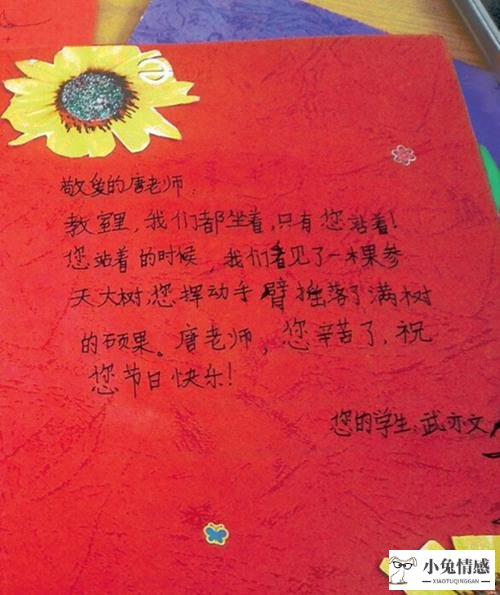 敬爱的唐老师:
教室里,我们都坐着,只有您站着!
您站着的时候,我们看见了一棵参
天大树;您挥动手臂摇落了满树
的硕果。唐老师,您辛苦了,祝
您节日快乐!
您的学生:武亦文
小兔情感
XIAOTUQINGGAN